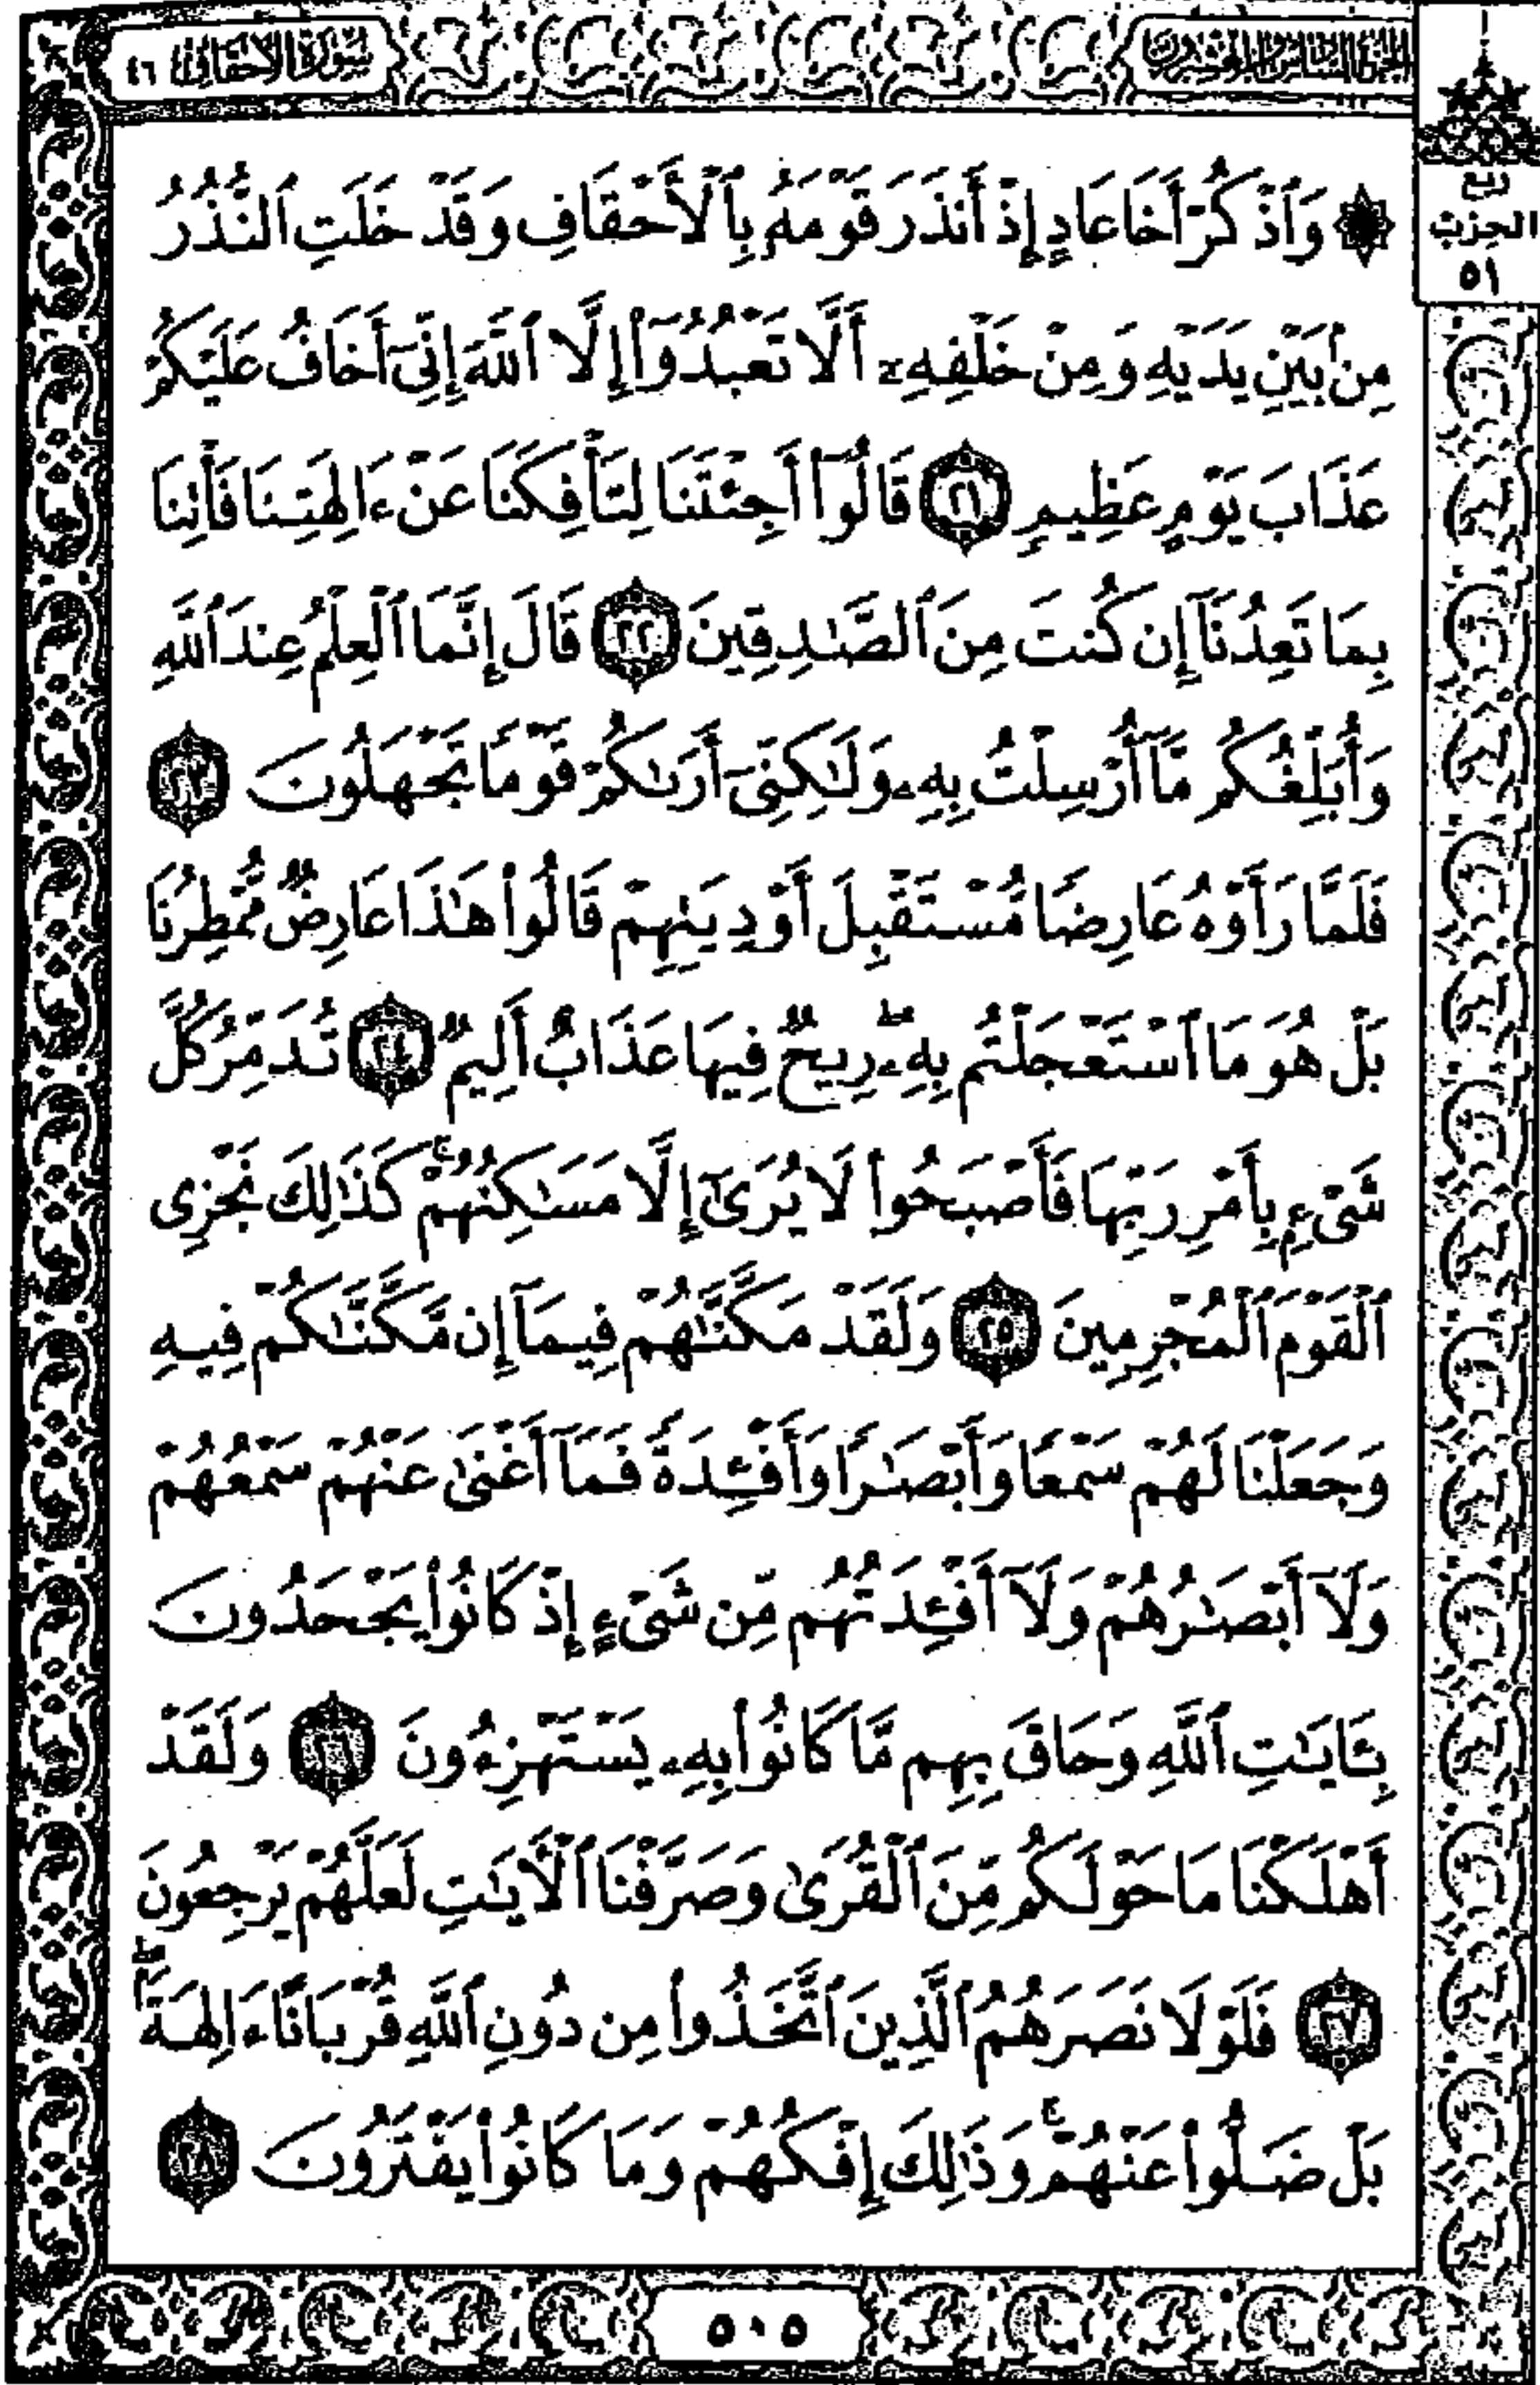 سُورَةُ الأَحْقَافِ ٤٦
الجُزْءُ السَّادِسُ وَالعِشْرُونَ
ربع
الحِزْب
٥١
۞ وَٱذْكُرْ أَخَا عَادٍ إِذْ أَنذَرَ قَوْمَهُۥ بِٱلْأَحْقَافِ وَقَدْ خَلَتِ ٱلنُّذُرُ
مِنۢ بَيْنِ يَدَيْهِ وَمِنْ خَلْفِهِۦٓ أَلَّا تَعْبُدُوٓا۟ إِلَّا ٱللَّهَ إِنِّىٓ أَخَافُ عَلَيْكُمْ
عَذَابَ يَوْمٍ عَظِيمٍ ٢١ قَالُوٓا۟ أَجِئْتَنَا لِتَأْفِكَنَا عَنْ ءَالِهَتِنَا فَأْتِنَا
بِمَا تَعِدُنَآ إِن كُنتَ مِنَ ٱلصَّـٰدِقِينَ ٢٢ قَالَ إِنَّمَا ٱلْعِلْمُ عِندَ ٱللَّهِ
وَأُبَلِّغُكُم مَّآ أُرْسِلْتُ بِهِۦ وَلَـٰكِنِّىٓ أَرَىٰكُمْ قَوْمًا تَجْهَلُونَ ٢٣
فَلَمَّا رَأَوْهُ عَارِضًا مُّسْتَقْبِلَ أَوْدِيَتِهِمْ قَالُوا۟ هَـٰذَا عَارِضٌ مُّمْطِرُنَا
بَلْ هُوَ مَا ٱسْتَعْجَلْتُم بِهِۦ ۖ رِيحٌ فِيهَا عَذَابٌ أَلِيمٌ ٢٤ تُدَمِّرُ كُلَّ
شَىْءٍۭ بِأَمْرِ رَبِّهَا فَأَصْبَحُوا۟ لَا يُرَىٰٓ إِلَّا مَسَـٰكِنُهُمْ ۚ كَذَٰلِكَ نَجْزِى
ٱلْقَوْمَ ٱلْمُجْرِمِينَ ٢٥ وَلَقَدْ مَكَّنَّـٰهُمْ فِيمَآ إِن مَّكَّنَّـٰكُمْ فِيهِ
وَجَعَلْنَا لَهُمْ سَمْعًا وَأَبْصَـٰرًا وَأَفْـِٔدَةً فَمَآ أَغْنَىٰ عَنْهُمْ سَمْعُهُمْ
وَلَآ أَبْصَـٰرُهُمْ وَلَآ أَفْـِٔدَتُهُم مِّن شَىْءٍ إِذْ كَانُوا۟ يَجْحَدُونَ
بِـَٔايَـٰتِ ٱللَّهِ وَحَاقَ بِهِم مَّا كَانُوا۟ بِهِۦ يَسْتَهْزِءُونَ ٢٦ وَلَقَدْ
أَهْلَكْنَا مَا حَوْلَكُم مِّنَ ٱلْقُرَىٰ وَصَرَّفْنَا ٱلْـَٔايَـٰتِ لَعَلَّهُمْ يَرْجِعُونَ
٢٧ فَلَوْلَا نَصَرَهُمُ ٱلَّذِينَ ٱتَّخَذُوا۟ مِن دُونِ ٱللَّهِ قُرْبَانًا ءَالِهَةًۢ ۖ
بَلْ ضَلُّوا۟ عَنْهُمْ ۚ وَذَٰلِكَ إِفْكُهُمْ وَمَا كَانُوا۟ يَفْتَرُونَ ٢٨
٥٠٥